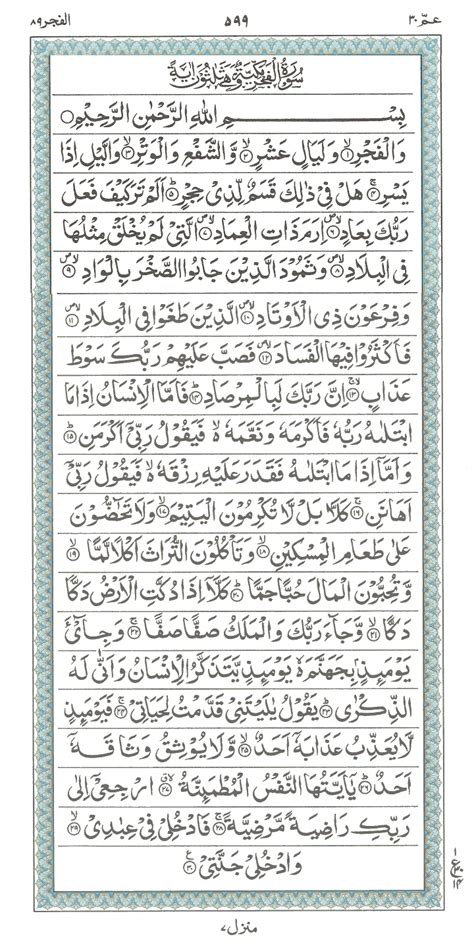 عـمّ ٣٠ ٥٩٩ الفجر ٨٩
سُوْرَةُ الْفَجْرِ مَكِّيَّةٌ وَّهِىَ ثَلٰثُوْنَ اٰيَةً
بِسْـــــــمِ اللّٰهِ الرَّحْمٰنِ الرَّحِيْمِ○
وَالْفَجْرِۙ﴿۱﴾ وَلَيَالٍ عَشْرٍۙ﴿۲﴾ وَّالشَّفْعِ وَالْوَتْرِۙ﴿۳﴾ وَالَّيْلِ اِذَا
يَسْرِۚ﴿۴﴾ هَلْ فِىْ ذٰلِكَ قَسَمٌ لِّذِىْ حِجْرٍؕ﴿۵﴾ اَلَمْ تَرَكَيْفَ فَعَلَ
رَبُّكَ بِعَادٍۙ﴿۶﴾ اِرَمَ ذَاتِ الْعِمَادِۙ﴿۷﴾ الَّتِىْ لَمْ يُخْلَقْ مِثْلُهَا
فِى الْبِلَادِۙ﴿۸﴾ وَثَمُوْدَ الَّذِيْنَ جَابُوا الصَّخْرَ بِالْوَادِۙ﴿۹﴾
وَفِرْعَوْنَ ذِى الْاَوْتَادِۙ﴿۱۰﴾ الَّذِيْنَ طَغَوْا فِى الْبِلَادِۙ﴿۱۱﴾
فَاَكْثَرُوْا فِيْهَا الْفَسَادَۙ﴿۱۲﴾ فَصَبَّ عَلَيْهِمْ رَبُّكَ سَوْطَ
عَذَابٍۚۙ﴿۱۳﴾ اِنَّ رَبَّكَ لَبِالْمِرْصَادِؕ﴿۱۴﴾ فَاَمَّا الْاِنْسَانُ اِذَا مَا
ابْتَلٰىهُ رَبُّهٗ فَاَكْرَمَهٗ وَنَعَّمَهٗ ۙ فَيَقُوْلُ رَبِّىْۤ اَكْرَمَنِؕ﴿۱۵﴾
وَاَمَّاۤ اِذَا مَا ابْتَلٰىهُ فَقَدَرَ عَلَيْهِ رِزْقَهٗ ۙ فَيَقُوْلُ رَبِّىْۤ
اَهَانَنِۚ﴿۱۶﴾ كَلَّا بَلْ لَّا تُكْرِمُوْنَ الْيَتِيْمَۙ﴿۱۷﴾ وَلَا تَحٰٓضُّوْنَ
عَلٰى طَعَامِ الْمِسْكِيْنِۙ﴿۱۸﴾ وَتَاْكُلُوْنَ التُّرَاثَ اَكْلًا لَّمًّاۙ﴿۱۹﴾
وَّتُحِبُّوْنَ الْمَالَ حُبًّا جَمًّاؕ﴿۲۰﴾ كَلَّاۤ اِذَا دُكَّتِ الْاَرْضُ دَكًّا
دَكًّاۙ﴿۲۱﴾ وَّجَآءَ رَبُّكَ وَالْمَلَكُ صَفًّا صَفًّاۚ﴿۲۲﴾ وَجِاىْٓءَ
يَوْمَئِذٍۭ بِجَهَنَّمَ ۙ يَوْمَئِذٍ يَّتَذَكَّرُ الْاِنْسَانُ وَاَنّٰى لَهُ
الذِّكْرٰىؕ﴿۲۳﴾ يَقُوْلُ يٰلَيْتَنِىْ قَدَّمْتُ لِحَيَاتِىْۚ﴿۲۴﴾ فَيَوْمَئِذٍ
لَّا يُعَذِّبُ عَذَابَهٗۤ اَحَدٌۙ﴿۲۵﴾ وَّلَا يُوْثِقُ وَثَاقَهٗۤ
اَحَدٌؕ﴿۲۶﴾ يٰۤاَيَّتُهَا النَّفْسُ الْمُطْمَئِنَّةُۙ﴿۲۷﴾ ارْجِعِىْۤ اِلٰى
رَبِّكِ رَاضِيَةً مَّرْضِيَّةًۚ﴿۲۸﴾ فَادْخُلِىْ فِىْ عِبٰدِىْۙ﴿۲۹﴾
وَادْخُلِىْ جَنَّتِىْ﴿۳۰﴾
ع
منزل ٧